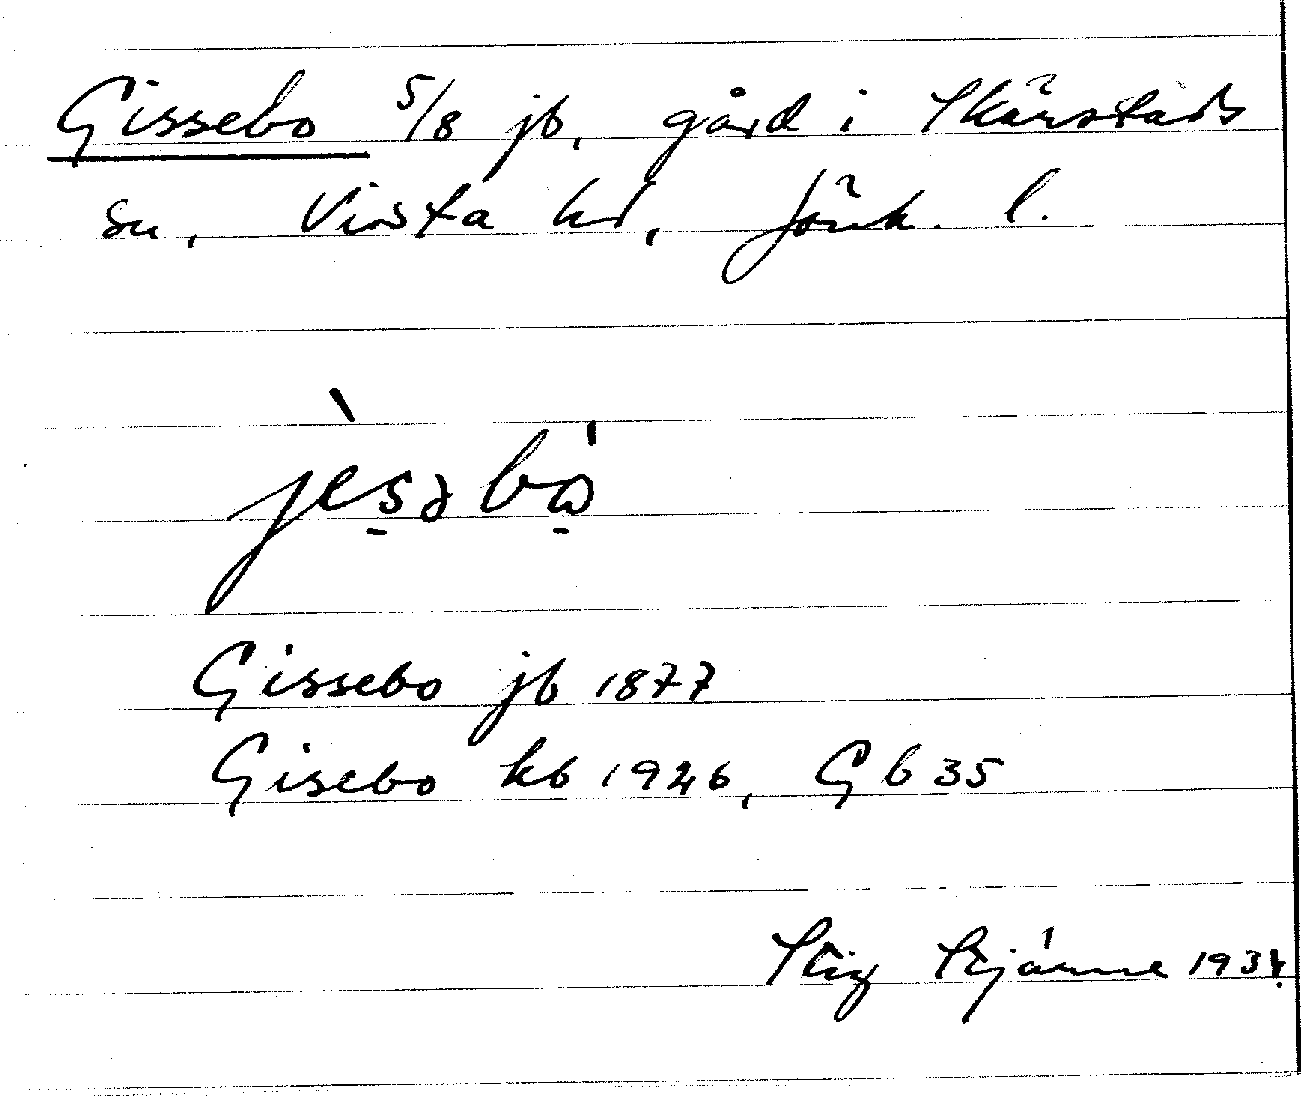 Gissebo 5/8 jb, gård i Skärstads
sn, Vista hd, Jönk. l.
jèsəbo
Gissebo jb 1877
Gisebo kb 1926, Gb 35
Stig 193